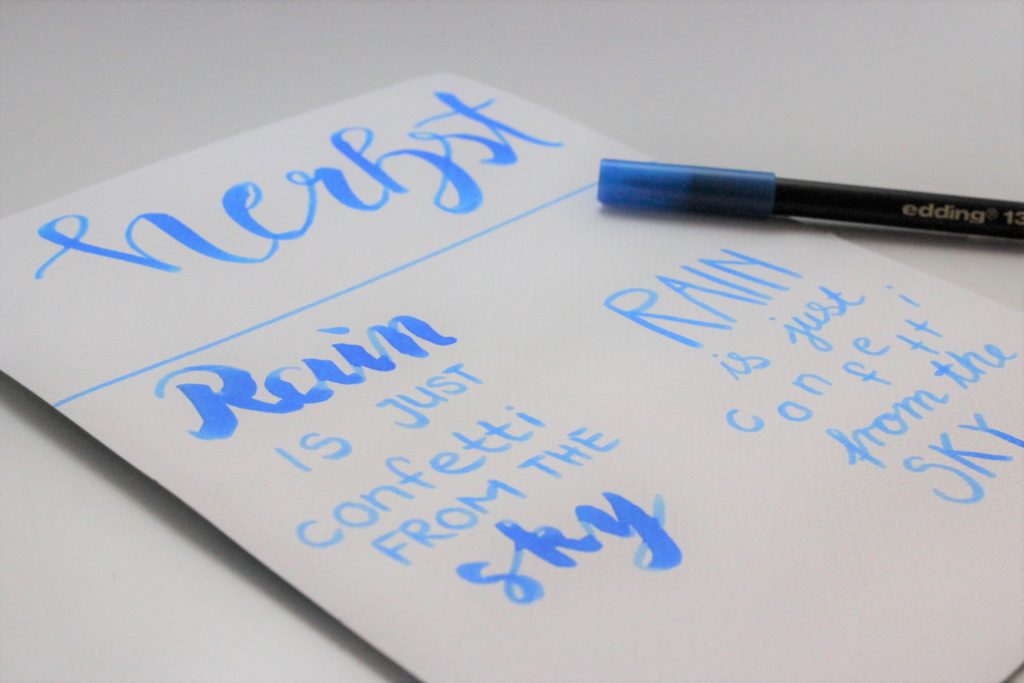 herbst
Rain
IS JUST
confetti
FROM THE
sky
RAIN
is just
confetti
from the
SKY
edding® 13